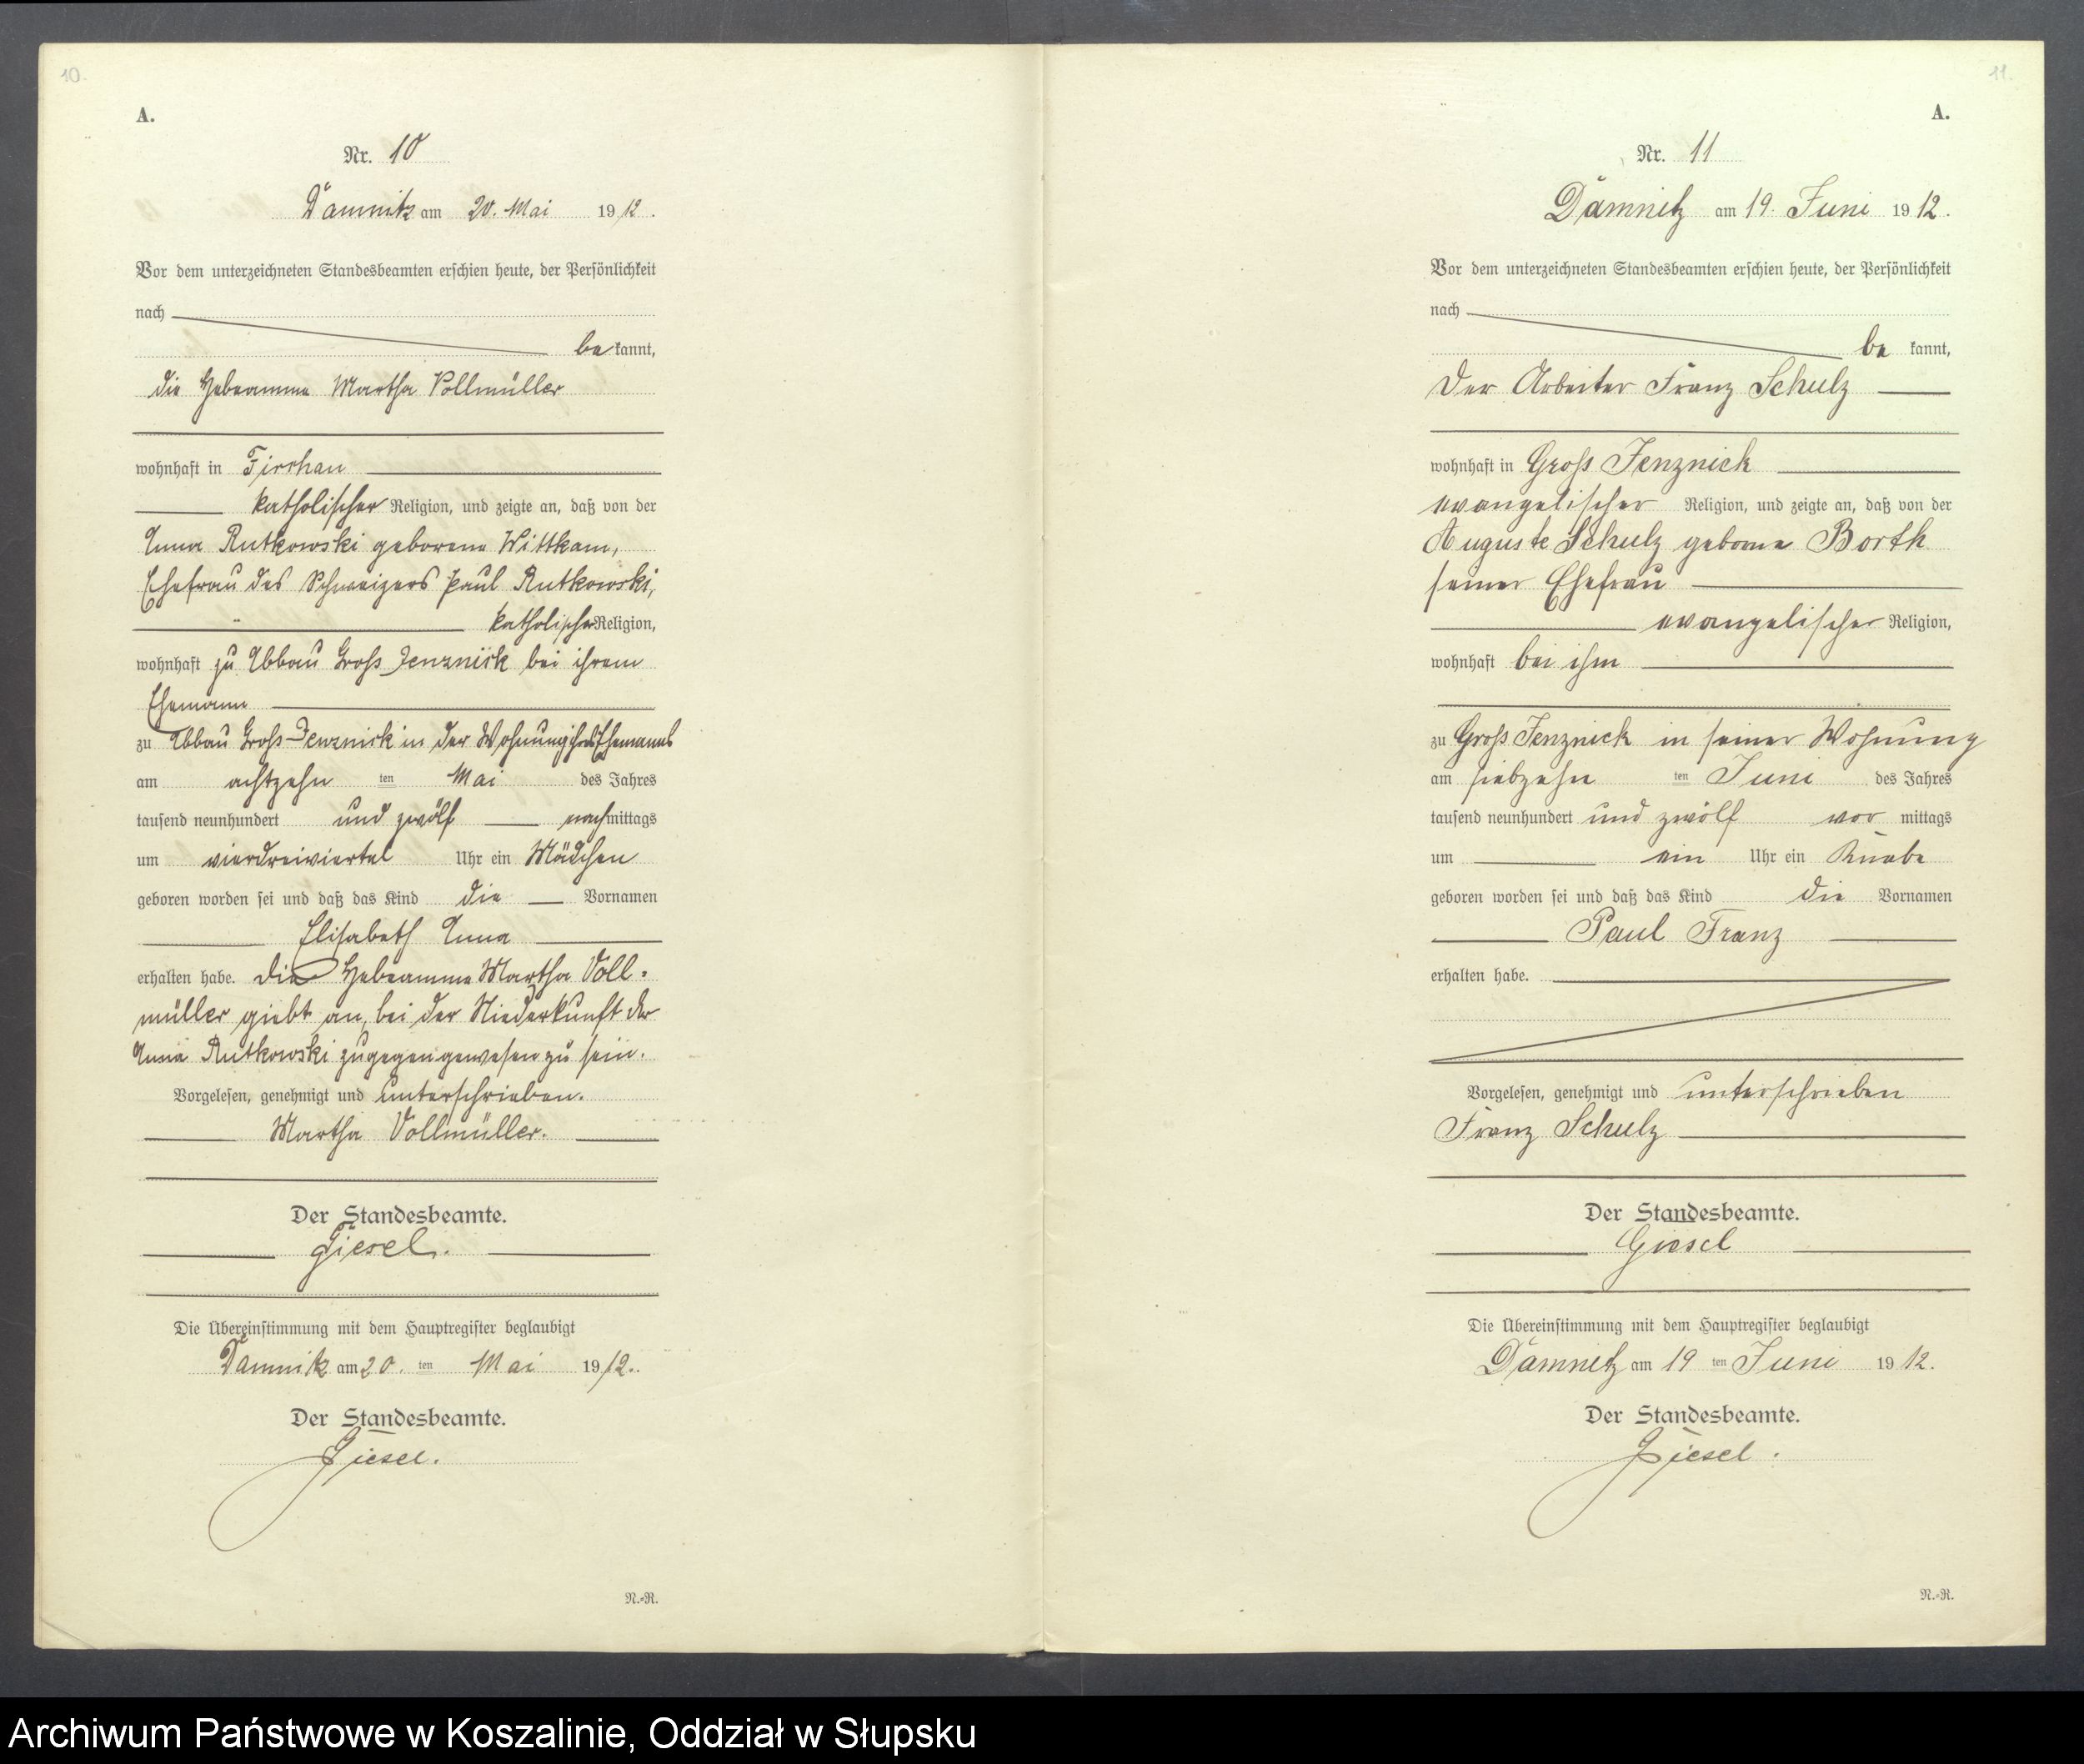 10.
A.
Nr. 10
Damnitz am 20. Mai 1912.
Vor dem unterzeichneten Standesbeamten erschien heute, der Persönlichkeit
nach
bekannt,
die Hebeamme Martha Vollmüller
wohnhaft in Firchau
katholischer Religion, und zeigte an, daß von der
Anna Rutkowski geborene Wittkam,
Ehefrau des Schweizers Paul Rutkowski,
katholischer Religion,
wohnhaft zu Abbau Gross Jenznick bei ihrem
Ehemann
zu Abbau Gross-Jenznick in der Wohnung ihres Ehemanns
am achtzehn ten Mai des Jahres
tausend neunhundert und zwölf nachmittags
um vierdreiviertel Uhr ein Mädchen
geboren worden sei und daß das Kind die Vornamen
Elisabeth Anna
erhalten habe. Die Hebeamme Martha Voll-
müller giebt an, bei der Niederkunft der
Anna Rutkowski zugegen gewesen zu sein.
Vorgelesen, genehmigt und unterschrieben.
Martha Vollmüller.
Der Standesbeamte.
Giesel.
Die Übereinstimmung mit dem Hauptregister beglaubigt
Damnitz am 20. ten Mai 1912.
Der Standesbeamte.
Giesel.
N.-R.
11.
A.
Nr. 11
Damnitz am 19. Juni 1912.
Vor dem unterzeichneten Standesbeamten erschien heute, der Persönlichkeit
nach
be kannt,
der Arbeiter Franz Schulz
wohnhaft in Gross Jenznick
evangelischer Religion, und zeigte an, daß von der
Auguste Schulz geborne Borth
seiner Ehefrau
evangelischer Religion,
wohnhaft bei ihm
zu Gross Jenznick in seiner Wohnung
am siebzehn ten Juni des Jahres
tausend neunhundert und zwölf vor mittags
um ein Uhr ein Knabe
geboren worden sei und daß das Kind die Vornamen
Paul Franz
erhalten habe.
Vorgelesen, genehmigt und unterschrieben
Franz Schulz
Der Standesbeamte.
Giesel
Die Übereinstimmung mit dem Hauptregister beglaubigt
Damnitz am 19 ten Juni 1912.
Der Standesbeamte.
Giesel.
N.-R.
Archiwum Państwowe w Koszalinie, Oddział w Słupsku